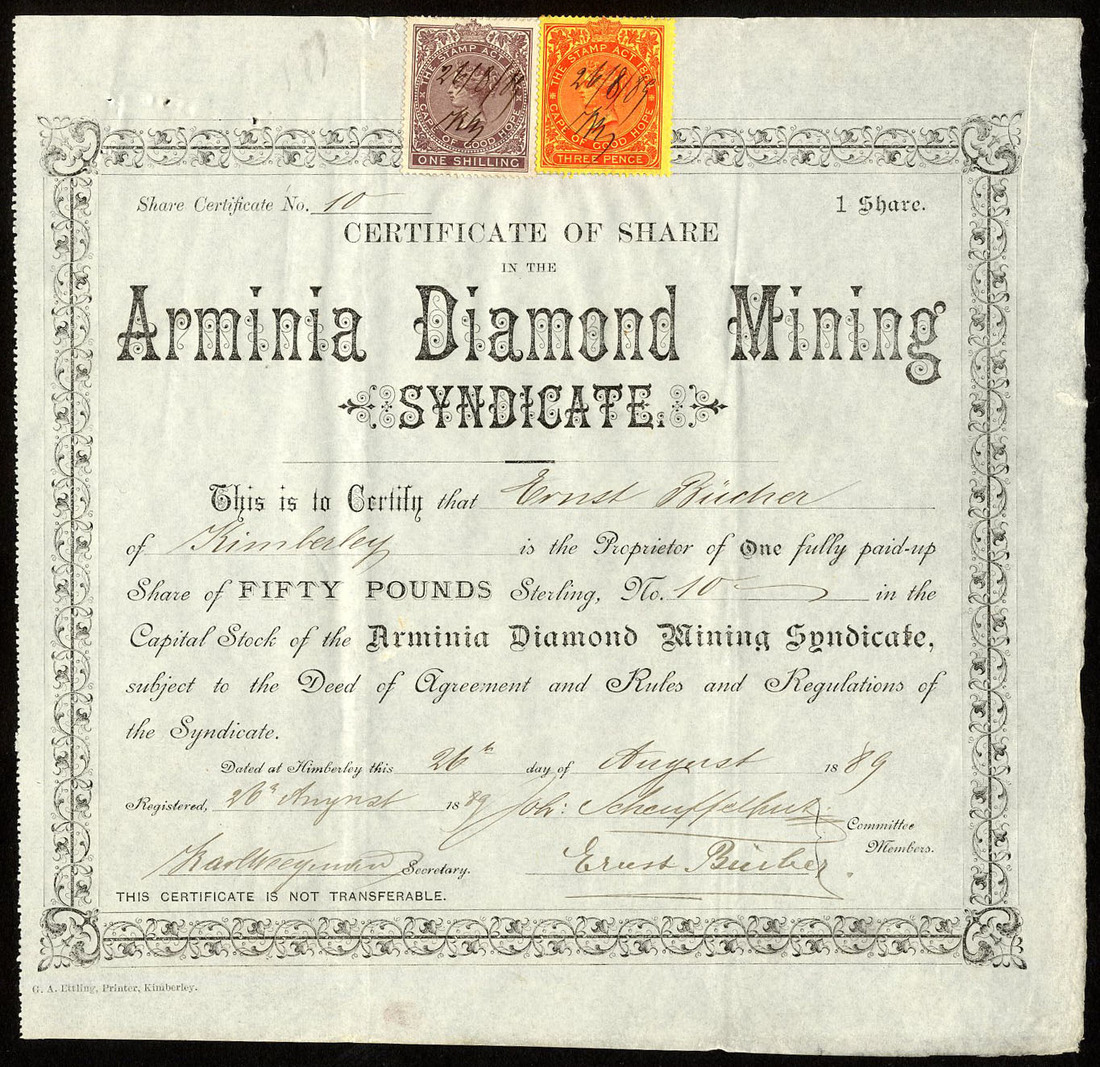 THE STAMP ACT
26/8/89
CAPE OF GOOD HOPE
ONE SHILLING
THE STAMP ACT
26/8/89
CAPE OF GOOD HOPE
THREE PENCE
Share Certificate No. 10
1 Share.
CERTIFICATE OF SHARE
IN THE
Arminia Diamond Mining
SYNDICATE.
This is to Certify that Ernst Bücher
of Kimberley is the Proprietor of One fully paid-up
Share of FIFTY POUNDS Sterling, No. 10 in the
Capital Stock of the Arminia Diamond Mining Syndicate,
subject to the Deed of Agreement and Rules and Regulations of
the Syndicate.
Dated at Kimberley this 26th day of August 1889
Registered, 26th August 1889 Joh: Scheuffelhut
Committee
Members.
Secretary. Ernst Bücher
THIS CERTIFICATE IS NOT TRANSFERABLE.
G. A. Ettling, Printer, Kimberley.